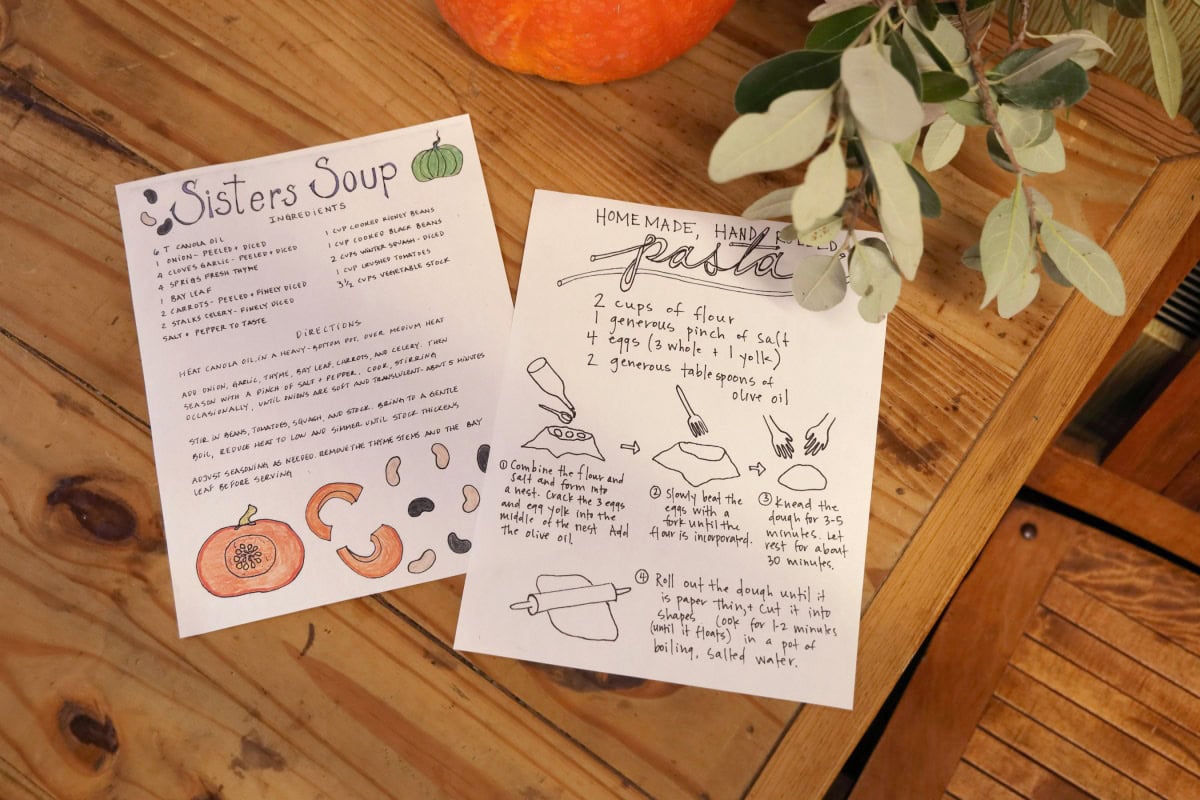 Sisters Soup
INGREDIENTS
6 T CANOLA OIL
1 ONION - PEELED + DICED
4 CLOVES GARLIC - PEELED + DICED
4 SPRIGS FRESH THYME
1 BAY LEAF
2 CARROTS - PEELED + FINELY DICED
2 STALKS CELERY - FINELY DICED
SALT + PEPPER TO TASTE
1 CUP COOKED KIDNEY BEANS
1 CUP COOKED BLACK BEANS
2 CUPS WINTER SQUASH - DICED
1 CUP CRUSHED TOMATOES
3 1/2 CUPS VEGETABLE STOCK
DIRECTIONS
HEAT CANOLA OIL IN A HEAVY-BOTTOM POT. OVER MEDIUM HEAT
ADD ONION, GARLIC, THYME, BAY LEAF, CARROTS, AND CELERY. THEN
SEASON WITH A PINCH OF SALT + PEPPER. COOK, STIRRING
OCCASIONALLY, UNTIL ONIONS ARE SOFT AND TRANSLUCENT. ABOUT 5 MINUTES
STIR IN BEANS, TOMATOES, SQUASH, AND STOCK. BRING TO A GENTLE
BOIL, REDUCE HEAT TO LOW AND SIMMER UNTIL STOCK THICKENS
ADJUST SEASONING AS NEEDED. REMOVE THE THYME STEMS AND THE BAY
LEAF BEFORE SERVING
HOMEMADE, HAND ROLLED
pasta
2 cups of flour
1 generous pinch of salt
4 eggs (3 whole + 1 yolk)
2 generous tablespoons of
olive oil
① Combine the flour and
salt and form into
a nest. Crack the 3 eggs
and egg yolk into the
middle of the nest Add
the olive oil.
② Slowly beat the
eggs with a
fork until the
flour is incorporated.
③ Knead the
dough for 3-5
minutes. Let
rest for about
30 minutes.
④ Roll out the dough until it
is paper thin, + cut it into
shapes. Cook for 1-2 minutes
(until it floats) in a pot of
boiling, salted water.